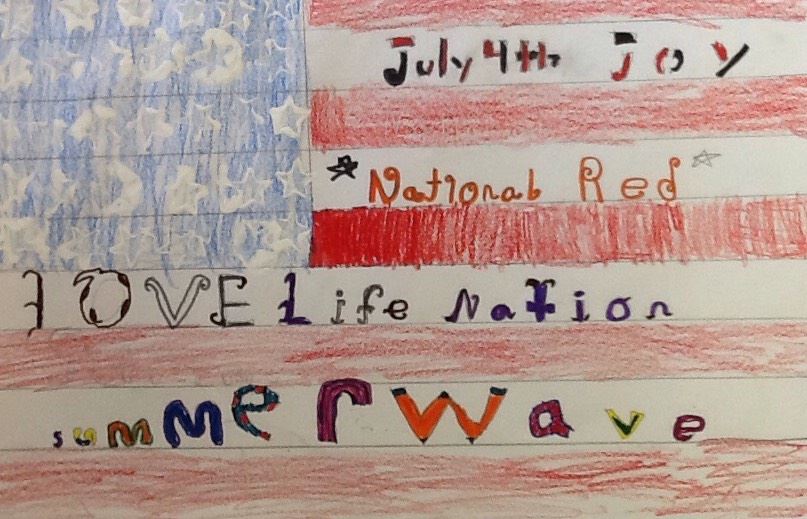 July 4th Joy
National Red
LOVE Life Nation
summer wave